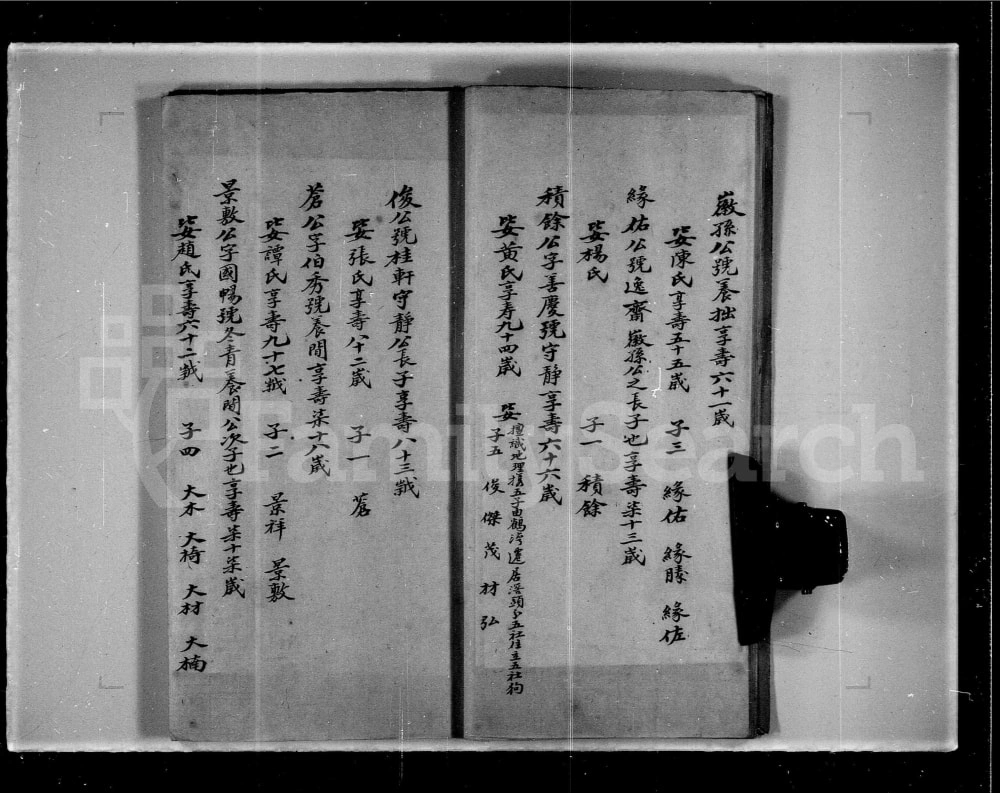 嶶孫公號養拙享壽六十一歲
妣陳氏享壽五十五歲 子三 緣佑 緣勝 緣佐
緣佑公號逸齋嶶孫公之長子也享壽柒十三歲
妣楊氏 子一 積餘
積餘公字善慶號守靜享壽六十六歲
妣黃氏享寿九十四歲 妣擅識地理携五子由鶴湾遷居滘頭分五社住立五社狗
子五 俊 傑 茂 材 弘
俊公號桂軒守靜公長子享壽八十三歲
妣張氏享壽八十二歲 子一 蒼
蒼公字伯秀號養閒享壽柒十八歲
妣譚氏享壽九十七歲 子二 景祥 景敷
景敷公字國暢號冬青養閒公次子也享壽柒十柒歲
妣趙氏享壽六十二歲 子四 大木 大椅 大材 大楠
FamilySearch